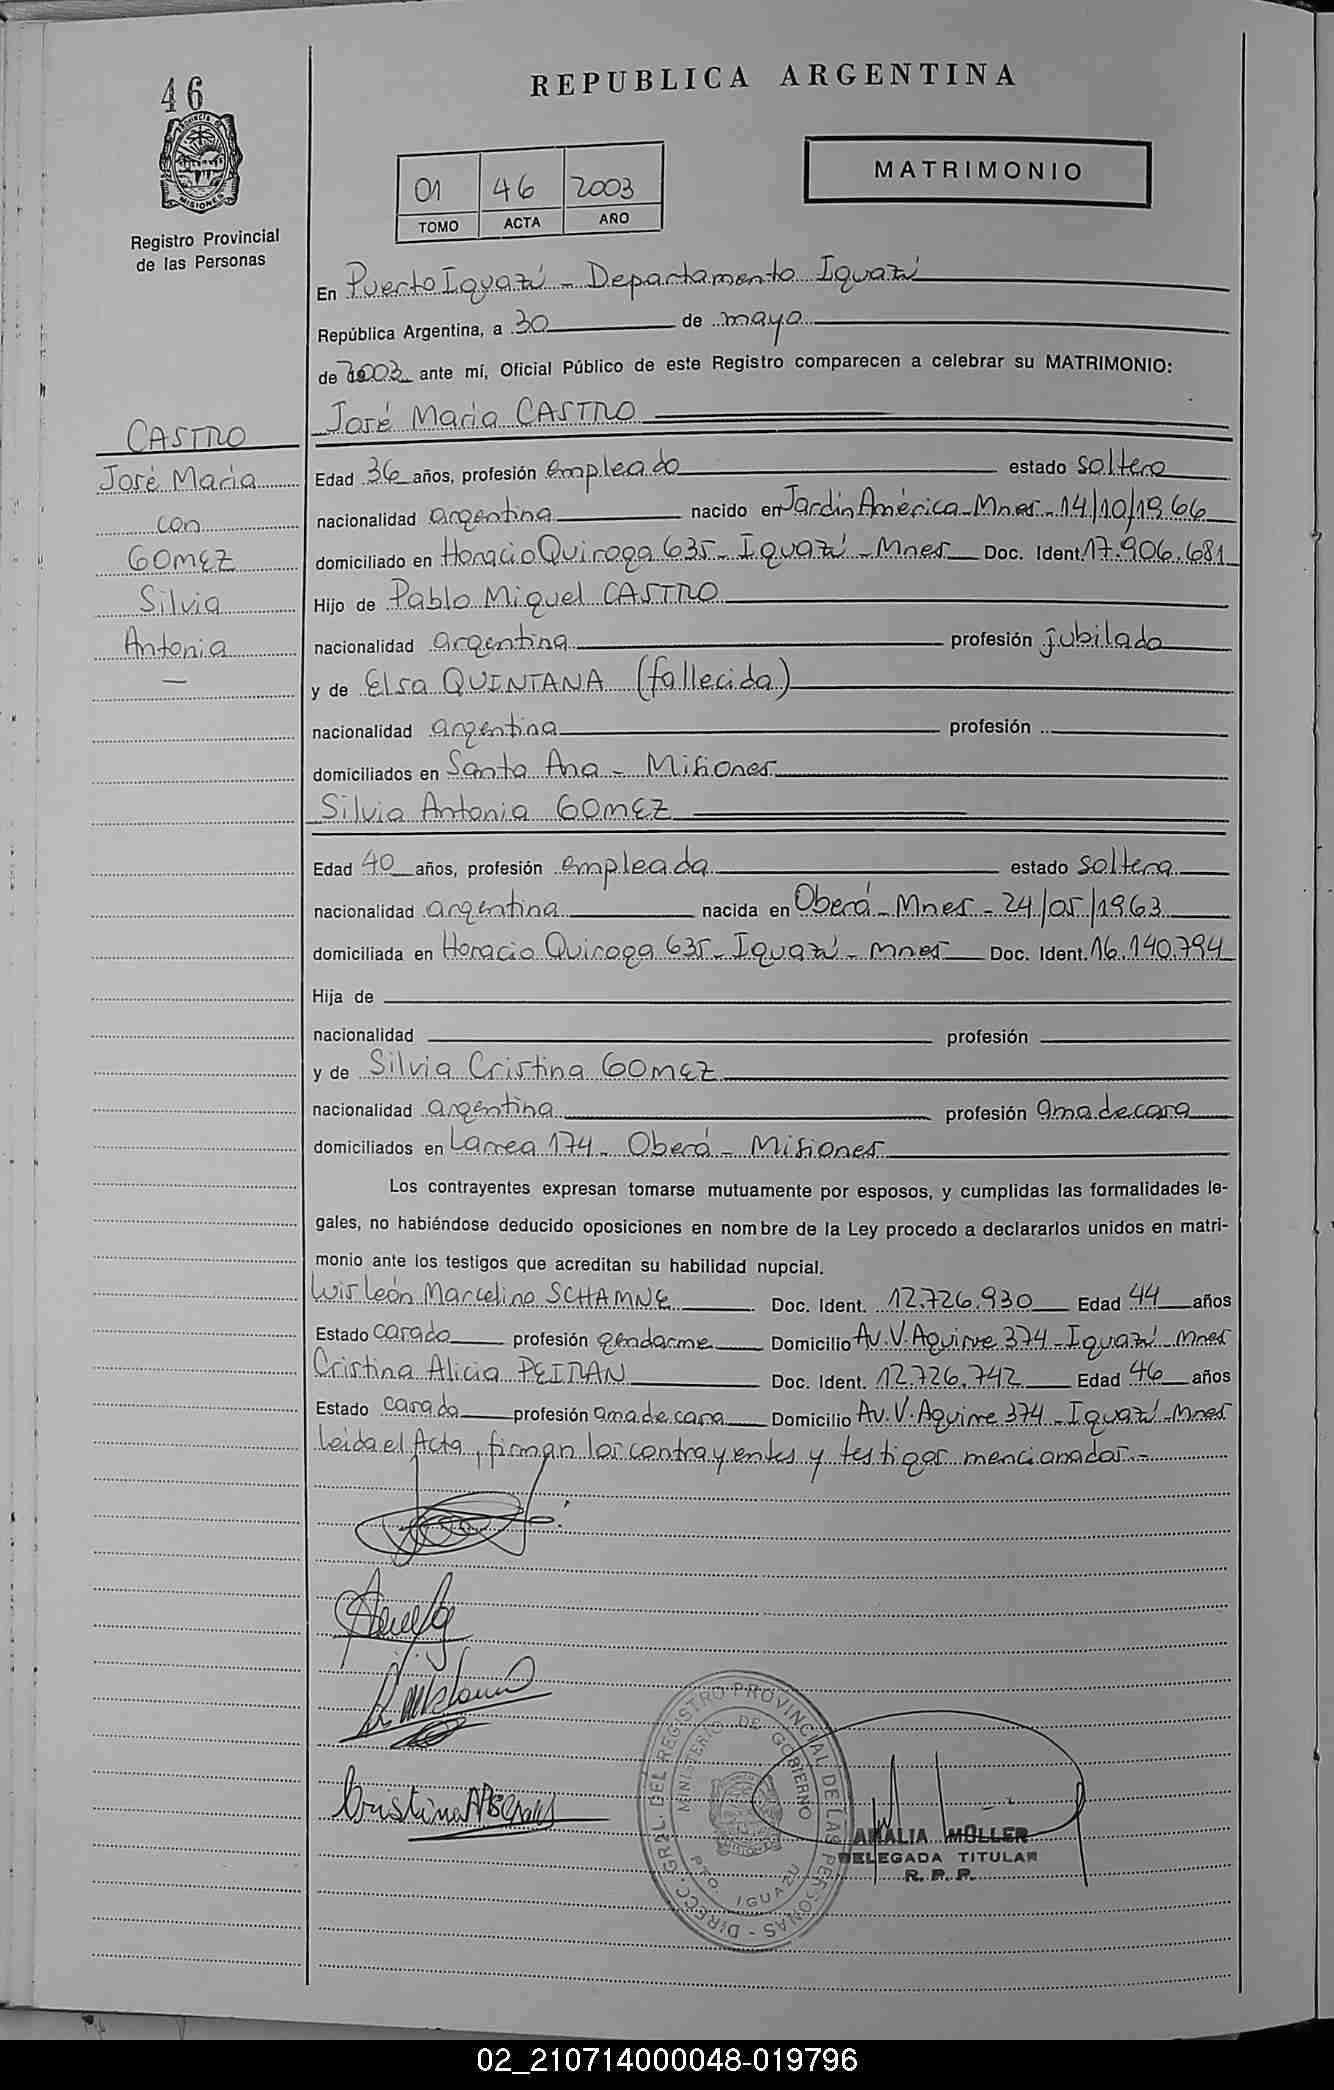 46
REPUBLICA ARGENTINA
MATRIMONIO
01 46 2003
TOMO ACTA AÑO
PROVINCIA DE MISIONES
Registro Provincial
de las Personas
En Puerto Iguazú - Departamento Iguazú
República Argentina, a 30 de mayo
de 2003 ante mí, Oficial Público de este Registro comparecen a celebrar su MATRIMONIO:
José Maria CASTRO
CASTRO
José Maria
con
GOMEZ
Silvia
Antonia
—
Edad 36 años, profesión empleado estado soltero
nacionalidad argentina nacido en Jardín América - Mnes - 14/10/1966
domiciliado en Horacio Quiroga 635 - Iguazú - Mnes Doc. Ident. 17.906.681
Hijo de Pablo Miguel CASTRO
nacionalidad argentina profesión jubilado
y de Elsa QUINTANA (fallecida)
nacionalidad argentina profesión
domiciliados en Santa Ana - Misiones
Silvia Antonia GOMEZ
Edad 40 años, profesión empleada estado soltera
nacionalidad argentina nacida en Oberá - Mnes - 24/05/1963
domiciliada en Horacio Quiroga 635 - Iguazú - Mnes Doc. Ident. 16.140.794
Hija de
nacionalidad profesión
y de Silvia Cristina GOMEZ
nacionalidad argentina profesión ama de casa
domiciliados en Larrea 174 - Oberá - Misiones
Los contrayentes expresan tomarse mutuamente por esposos, y cumplidas las formalidades le-
gales, no habiéndose deducido oposiciones en nombre de la Ley procedo a declararlos unidos en matri-
monio ante los testigos que acreditan su habilidad nupcial.
Luis León Marcelino SCHAMNE Doc. Ident. 12.726.930 Edad 44 años
Estado casado profesión gendarme Domicilio Av. V. Aguirre 374 - Iguazú - Mnes
Cristina Alicia PEITRAN Doc. Ident. 12.726.742 Edad 46 años
Estado casada profesión ama de casa Domicilio Av. V. Aguirre 374 - Iguazú - Mnes
Leida el Acta, firman los contrayentes y testigos mencionados.-
DIRECC. GRAL. DEL REGISTRO PROVINCIAL DE LAS PERSONAS -
MINISTERIO DE GOBIERNO
PTO. IGUAZU
AMALIA MÜLLER
DELEGADA TITULAR
R. P. P.
02_210714000048-019796